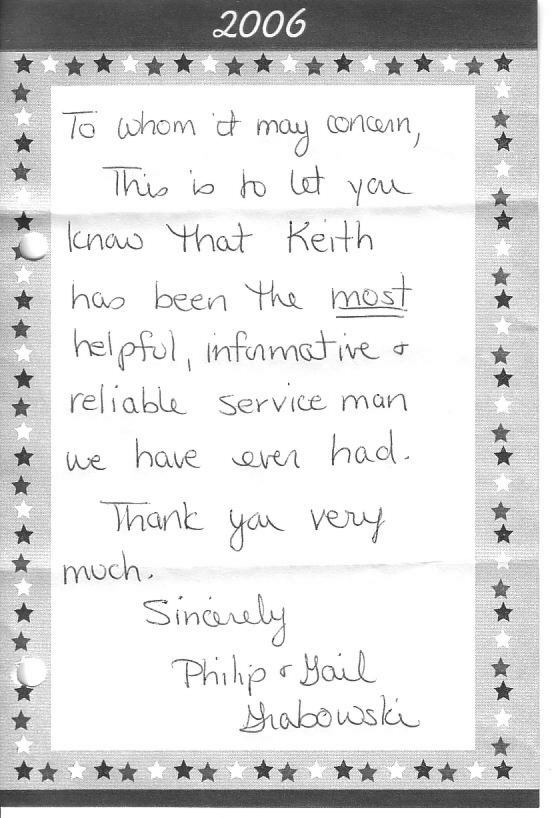 2006
To whom it may concern,
This is to let you
know that Keith
has been the most
helpful, informative &
reliable service man
we have ever had.
Thank you very
much.
Sincerely
Philip & Gail
Grabowski